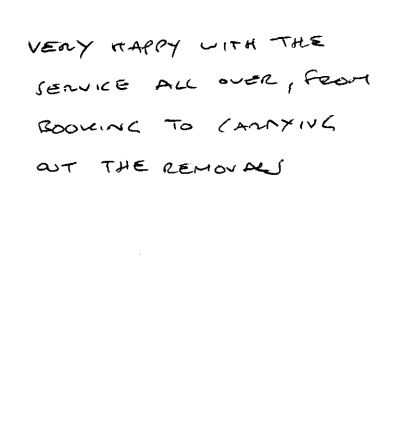 VERY HAPPY WITH THE
SERVICE ALL OVER, FROM
BOOKING TO CARRYING
OUT THE REMOVALS